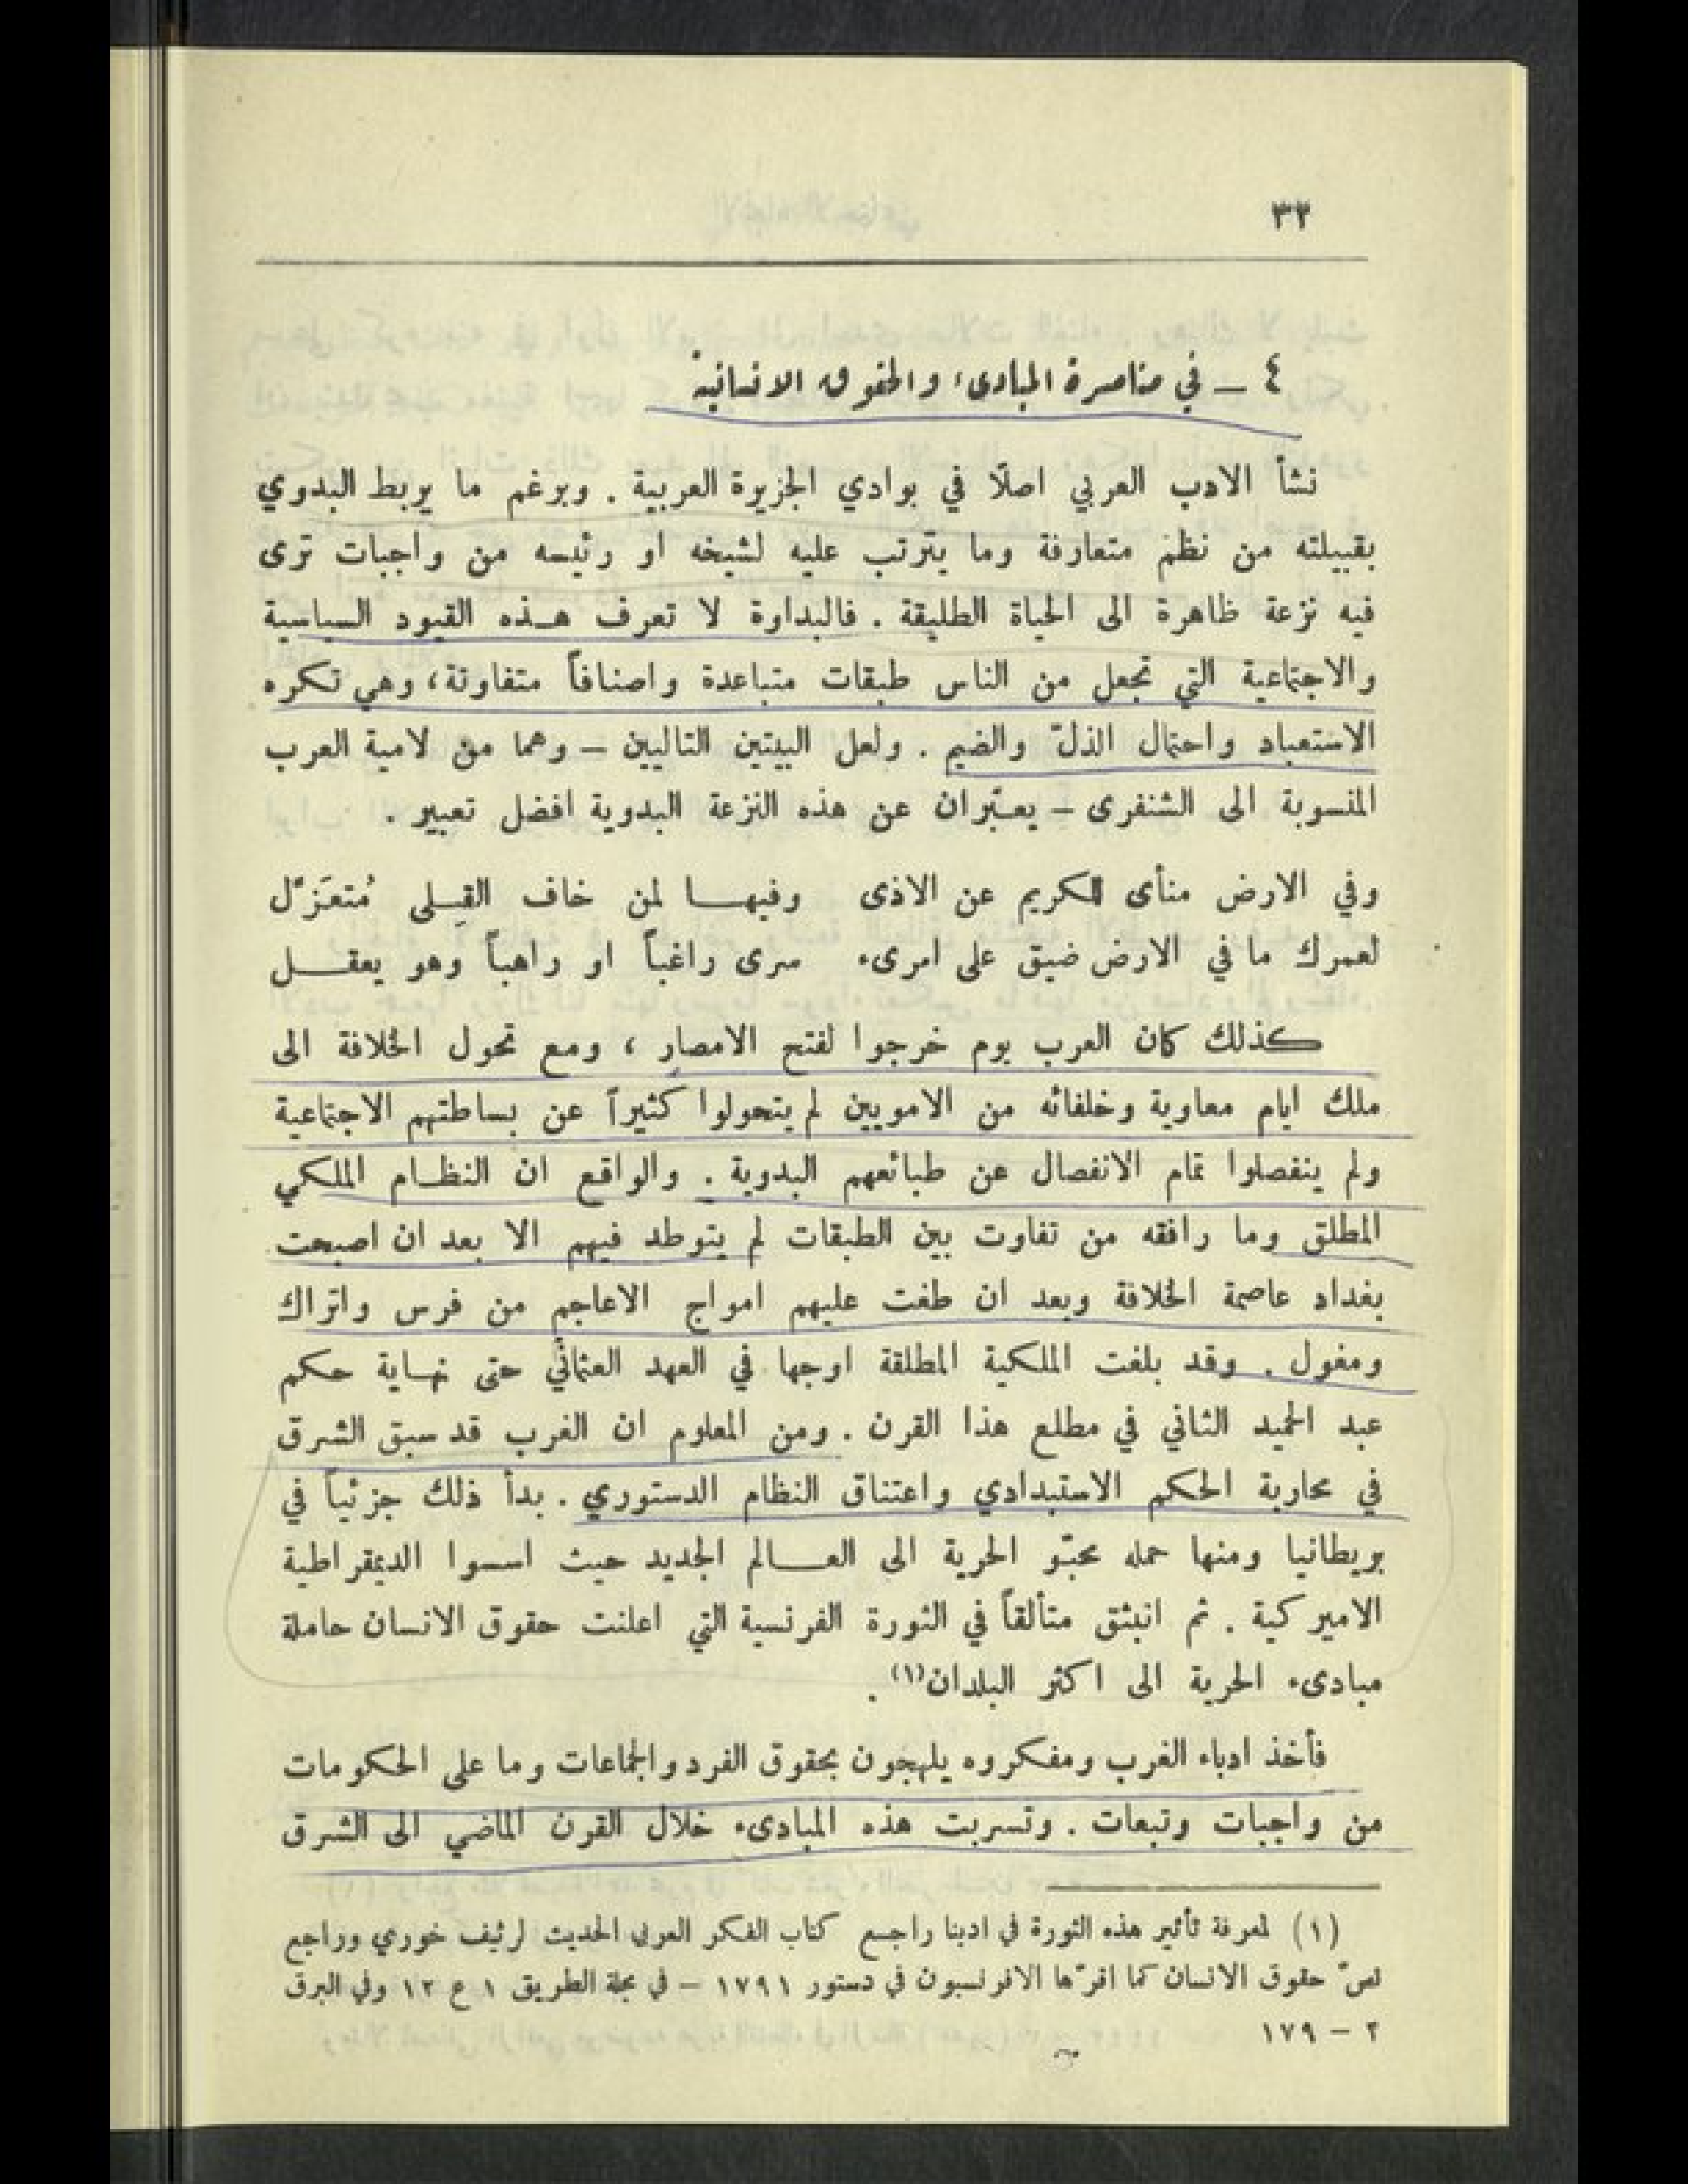 ٣٢
٤ – في مناصرة المبادىء والحقوق الانسانية
نشأ الادب العربي اصلًا في بوادي الجزيرة العربية . وبرغم ما يربط البدوي
بقبيلته من نظم متعارفة وما يترتب عليه لشيخه او رئيسه من واجبات ترى
فيه نزعة ظاهرة الى الحياة الطليقة . فالبداوة لا تعرف هذه القيود السياسية
والاجتماعية التي تجعل من الناس طبقات متباعدة واصنافاً متفاوتة، وهي تكره
الاستعباد واحتمال الذلّ والضيم . ولعل البيتين التاليين – وهما من لامية العرب
المنسوبة الى الشنفرى – يعبّران عن هذه النزعة البدوية افضل تعبير .
وفي الارض منأى للكريم عن الاذى وفيها لمن خاف القِلى مُتعَزّل
لعمرك ما في الارض ضيق على امرىء سرى راغباً او راهباً وهو يعقل
كذلك كان العرب يوم خرجوا لفتح الامصار ، ومع تحول الخلافة الى
ملك ايام معاوية وخلفائه من الامويين لم يتحولوا كثيراً عن بساطتهم الاجتماعية
ولم ينفصلوا تمام الانفصال عن طبائعهم البدوية . والواقع ان النظام الملكي
المطلق وما رافقه من تفاوت بين الطبقات لم يتوطد فيهم الا بعد ان اصبحت
بغداد عاصمة الخلافة وبعد ان طغت عليهم امواج الاعاجم من فرس واتراك
ومغول . وقد بلغت الملكية المطلقة اوجها في العهد العثماني حتى نهاية حكم
عبد الحميد الثاني في مطلع هذا القرن . ومن المعلوم ان الغرب قد سبق الشرق
في محاربة الحكم الاستبدادي واعتناق النظام الدستوري . بدأ ذلك جزئياً في
بريطانيا ومنها حمله محبّو الحرية الى العالم الجديد حيث اسسوا الديمقراطية
الاميركية . ثم انبثق متألقاً في الثورة الفرنسية التي اعلنت حقوق الانسان حاملة
مبادىء الحرية الى اكثر البلدان(١) .
فأخذ ادباء الغرب ومفكروه يلهجون بحقوق الفرد والجماعات وما على الحكومات
من واجبات وتبعات . وتسربت هذه المبادىء خلال القرن الماضي الى الشرق
(١) لمعرفة تأثير هذه الثورة في ادبنا راجع كتاب الفكر العربي الحديث لرئيف خوري وراجع
نصّ حقوق الانسان كما اقرّها الافرنسيون في دستور ١٧٩١ – في مجلة الطريق ١ ع ١٢ وفي البرق
٢ – ١٧٩